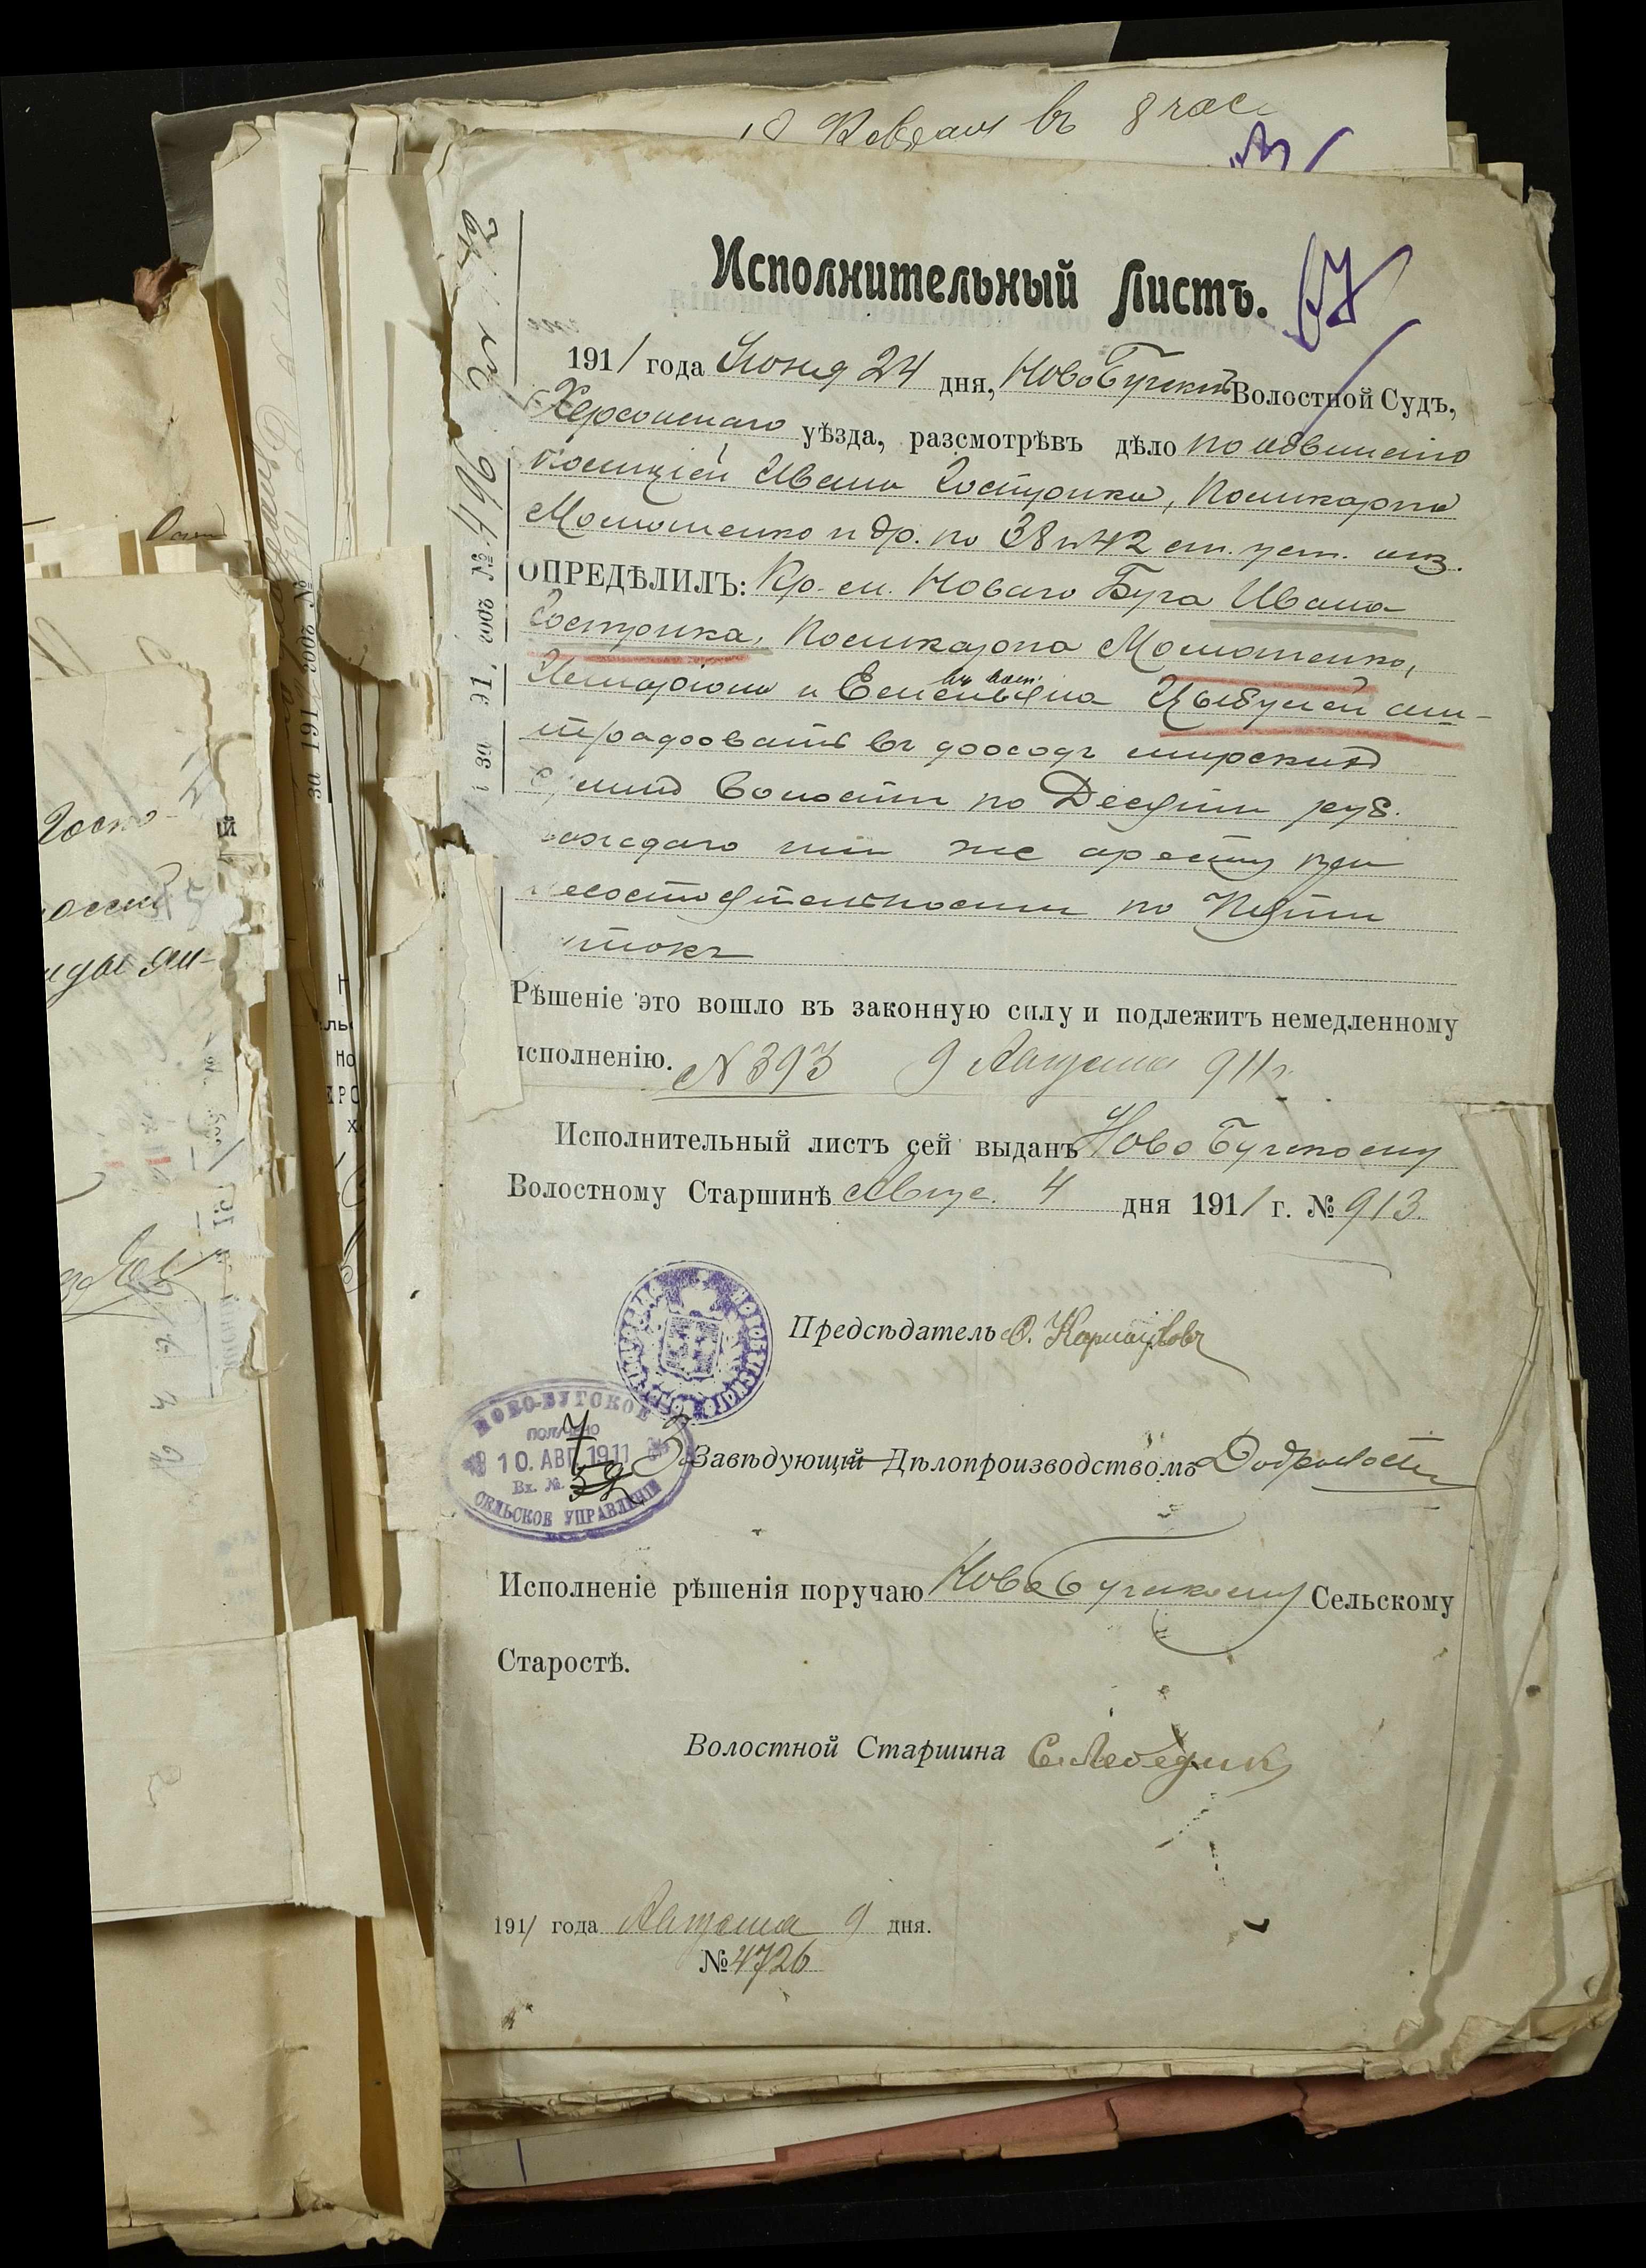 въ 8 час
67
Исполнительный Листъ.
1911 года Июня 24 дня, НовоБугскій Волостной Судъ,
Херсонскаго уѣзда, разсмотрѣвъ дѣло по обвинению
полиціей Ивана Гострика, Поликарпа
Молотенко и др. по 38 и 42 ст. уст. о нак.
ОПРЕДѢЛИЛЪ: Кр. с. Новаго Буга Ивана
Гострика, Поликарпа Молотенко,
Илларіона и Емельяна Цыбулей ош-
трафовать въ доходъ мирскихъ
суммъ волости по Десяти руб.
каждаго или же аресту при
несостоятельности по Пяти
сутокъ
Рѣшеніе это вошло въ законную силу и подлежитъ немедленному
исполненію. № 393 9 Августа 911 г.
Исполнительный листъ сей выданъ Ново Бугскому
Волостному Старшинѣ Авгус. 4 дня 1911 г. № 913.
Предсѣдатель
НОВО-БУГСКОЕ
ПОЛУЧЕНО
10. АВГ. 1911
Вх. №
СЕЛЬСКОЕ УПРАВЛЕНІЕ
Завѣдующій Дѣлопроизводствомъ
Исполненіе рѣшенія поручаю НовоБугскому Сельскому
Старостѣ.
Волостной Старшина С. Лебедик
1911 года Августа 9 дня.
№ 4726
за 191 годъ № 496